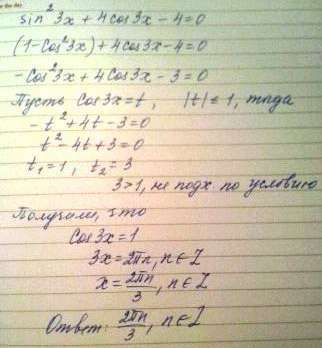 sin²3x + 4cos3x - 4 = 0
(1-cos²3x) + 4cos3x - 4 = 0
-cos²3x + 4cos3x - 3 = 0
Пусть cos3x = t, |t| ≤ 1, тогда
-t² + 4t - 3 = 0
t² - 4t + 3 = 0
t₁ = 1, t₂ = 3
3 > 1, не подх по условию
Получаем, что
Cos3x = 1
3x = 2πn, n ∈ Z
x = 2πn/3, n ∈ Z
Ответ: 2πn/3, n ∈ Z